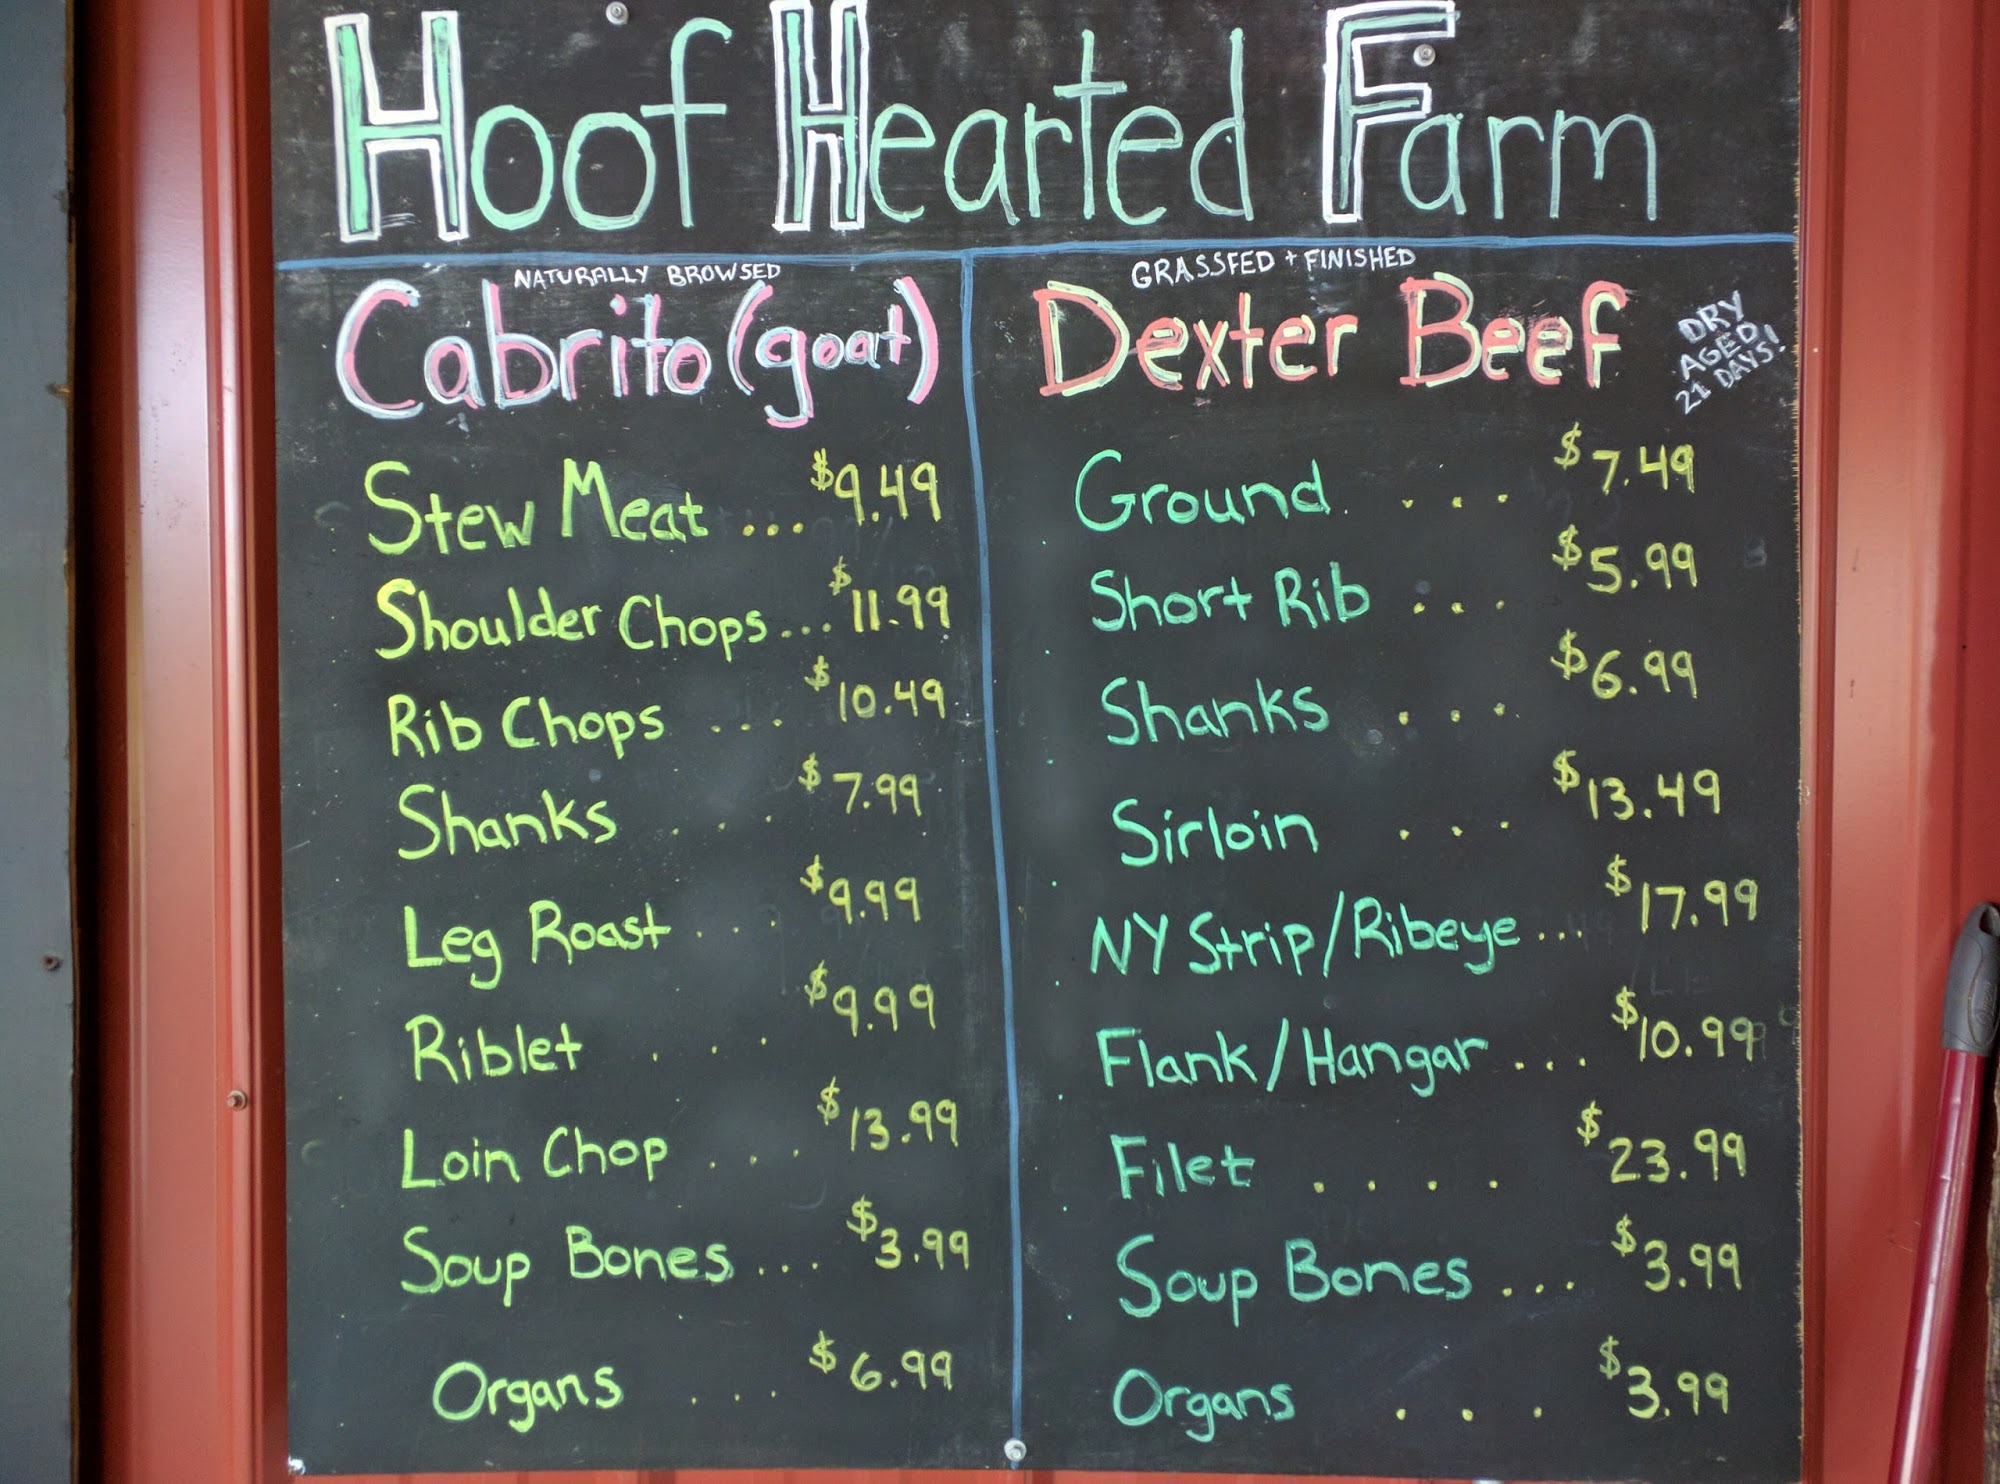 Hoof Hearted Farm
NATURALLY BROWSED
Cabrito (goat)
Stew Meat ... $9.49
Shoulder Chops ... $11.99
Rib Chops ... $10.49
Shanks ... $7.99
Leg Roast ... $9.99
Riblet ... $9.99
Loin Chop ... $13.99
Soup Bones ... $3.99
Organs ... $6.99
GRASSFED + FINISHED
Dexter Beef
DRY
AGED
21 DAYS!
Ground ... $7.49
Short Rib ... $5.99
Shanks ... $6.99
Sirloin ... $13.49
NY Strip/Ribeye ... $17.99
Flank/Hangar ... $10.99
Filet .... $23.99
Soup Bones ... $3.99
Organs ... $3.99